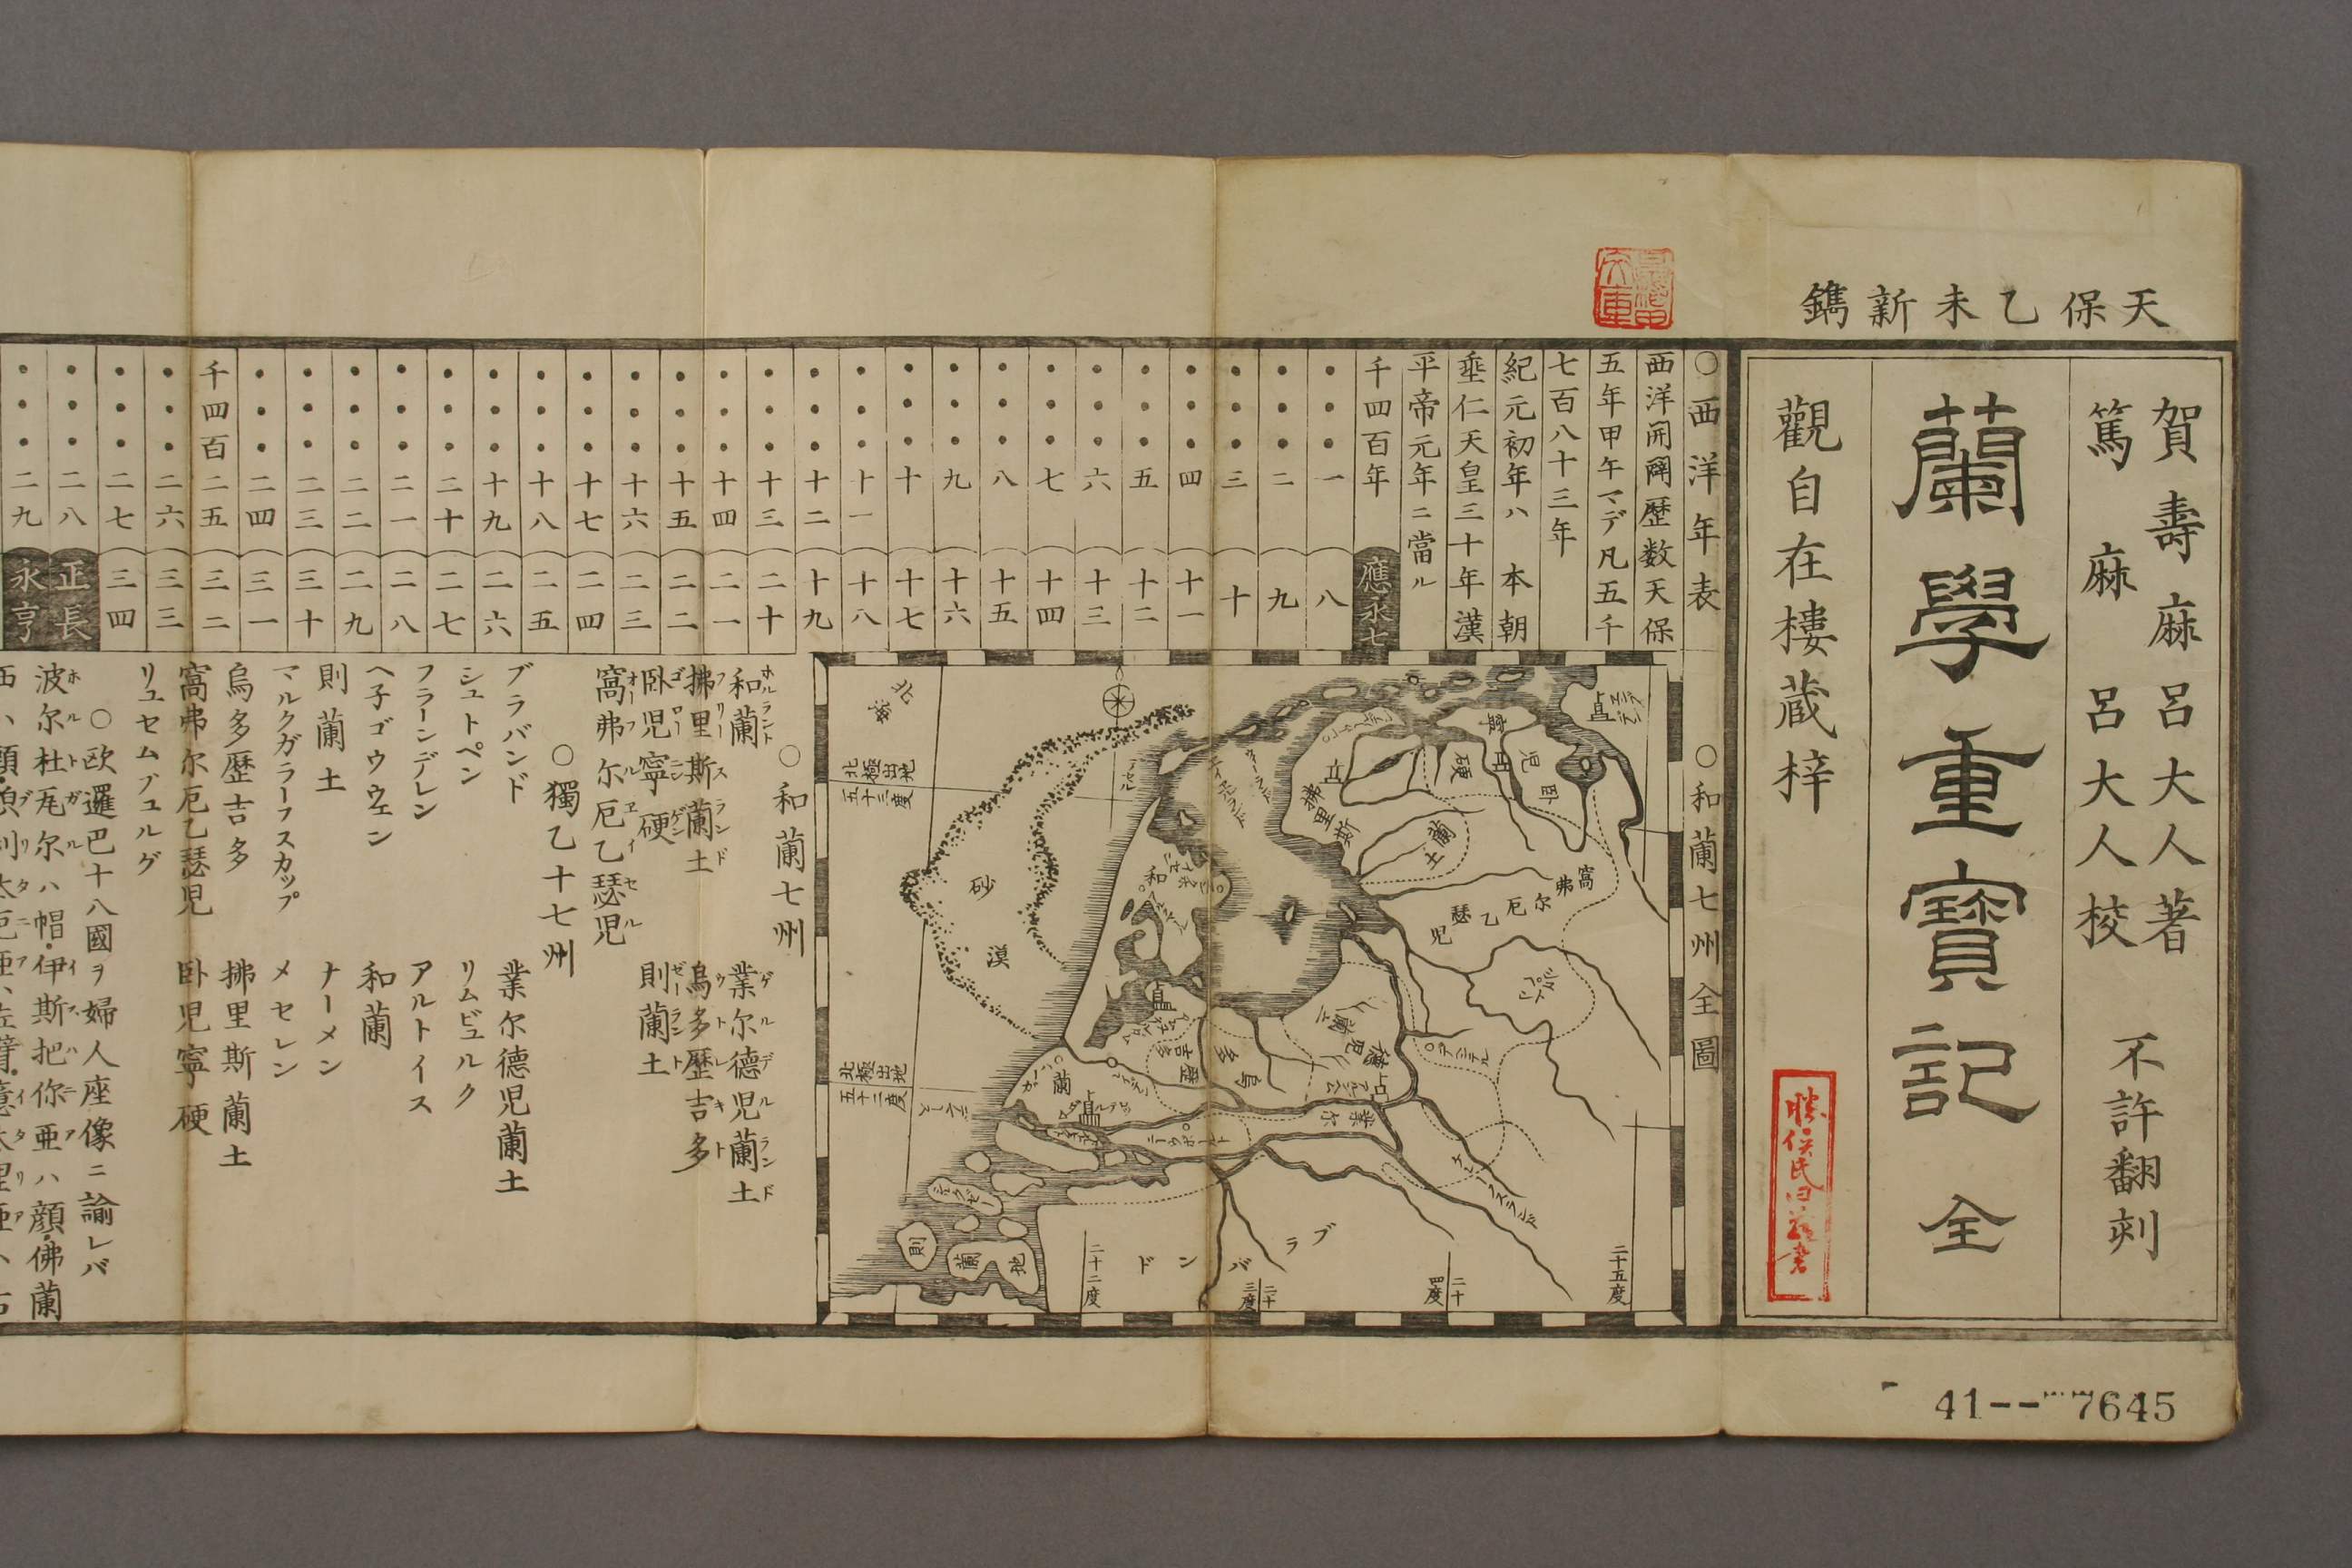 天保乙未新鐫
賀壽麻呂大人著
篤麻呂大人校
不許翻刻
蘭學重寶記 全
觀自在樓蔵梓
〇西洋年表
西洋開闢歴数天保
五年甲午マデ凡五千
七百八十三年
紀元初年ハ 本朝
垂仁天皇三十年漢
平帝元年ニ當ル
千四百年 應永七
・・・一 八
・・・二 九
・・・三 十
・・・四 十一
・・・五 十二
・・・六 十三
・・・七 十四
・・・八 十五
・・・九 十六
・・・十 十七
・・・十一 十八
・・・十二 十九
・・・十三 二十
・・・十四 二一
・・・十五 二二
・・・十六 二三
・・・十七 二四
・・・十八 二五
・・・十九 二六
・・・二十 二七
・・・二一 二八
・・・二二 二九
・・・二三 三十
・・・二四 三一
千四百二五 三二
・・・二六 三三
・・・二七 三四
・・・二八 正長
・・・二九 永享
〇和蘭七州全圖
北極出地
五十三度
北極出地
五十二度
砂漠
拂里斯
蘭土
窩弗尓厄乙瑟児
和
蘭
則蘭地
ブラバンド
二十二度
二十三度
二十四度
二十五度
〇和蘭七州
和蘭 ホルラント
業尔德児蘭土 ゲルデルランド
拂里斯蘭土 フリースランド
烏多歷吉多 ウトレキト
卧児寧硬 ゴローニンゲン
則蘭土 ゼーラント
窩弗尓厄乙瑟児 オーフルエイセル
〇獨乙十七州
ブラバンド
業尔德児蘭土
シュトペン
リムビュルク
フラーンデレン
アルトイス
ヘ子ゴウウェン
和蘭
則蘭土
ナーメン
マルクガラーフスカップ
メセレン
烏多歷吉多
拂里斯蘭土
窩弗尓厄乙瑟児
卧児寧硬
リュセムブュルグ
〇欧邏巴十八國ヲ婦人座像ニ諭レバ
波尓杜瓦尓ハ帽・伊斯把你亜ハ顔・佛蘭
41--7645